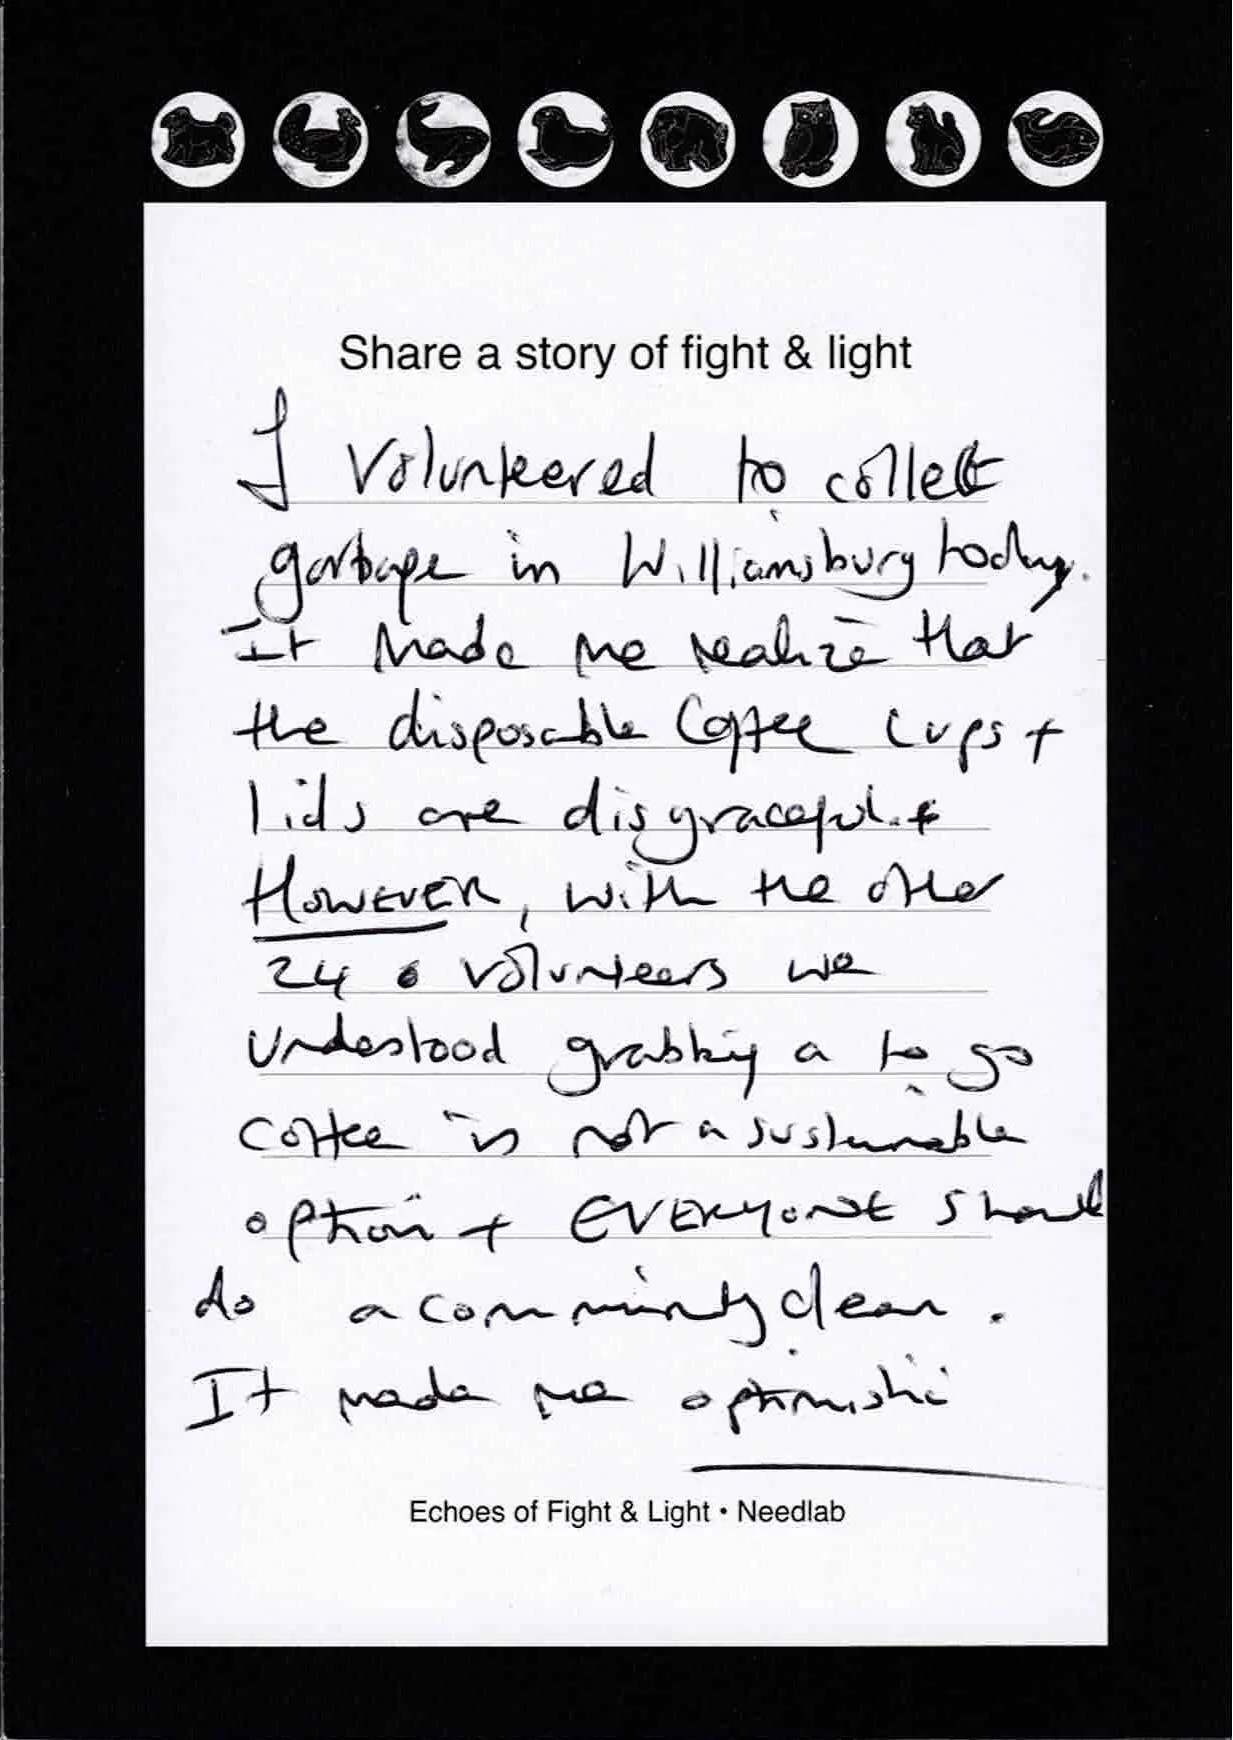 Share a story of fight & light
I volunteered to collect
garbage in Williamsburg today.
It made me realize that
the disposable Coffee cups +
lids are disgraceful.
HOWEVER, with the other
24 volunteers we
understood grabbing a to go
coffee is not a sustainable
option + EVERYONE should
do a community clean.
It made me optimistic
Echoes of Fight & Light • Needlab